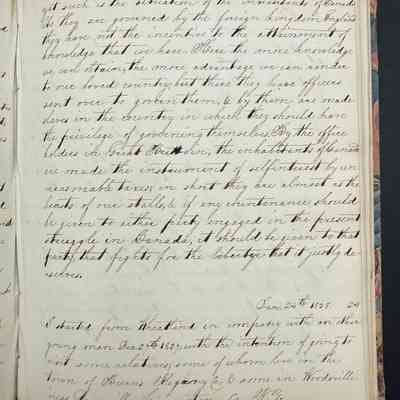 yet such is the situation of the inhabitants of Canada
As they are governed by the foreign kingdom England
they have not the incentive to the attainment of
knowledge that we have. Here the more knowledge
we can attain, the more advantage we can render
to our loved country, but there they have officers
sent over to govern them, & by them are made
slaves in the country in which they should have
the privilege of governing themselves. By the office
holders in Great Britain, the inhabitants of Canada
are made the instrument of self interest by un
reasonable taxes, in short they are almost as the
beasts of our stalls, & if any countenance should
be given to either party engaged in the present
struggle in Canada, it should be given to that
party that fights for the liberty that it justly de
serves.
Jan. 24th 1838 24
I started from Wheatland in company with an other
young man Dec. 27th 1837, with the intention of going to
visit some relations, some of whom live in the
town of Burns Allegany Co. & some in Woodville